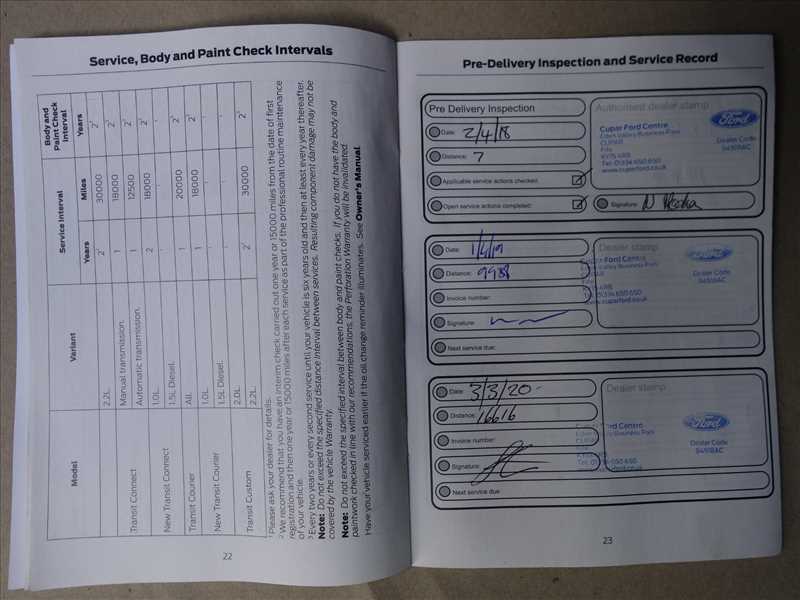 Service, Body and Paint Check Intervals
Model Variant Service Interval Body and Paint Check Interval
Years Miles Years
2.2L. 2² 30000 2³
Transit Connect Manual transmission. 1 18000 2³
Automatic transmission. 1 12500 2³
New Transit Connect 1.0L. 2 18000 2³
1.5L Diesel. - - -
Transit Courier All. 1 20000 2³
New Transit Courier 1.0L. 1 18000 2³
1.5L Diesel. - - -
Transit Custom 2.0L - - -
2.2L. 2² 30000 2³
¹ Please ask your dealer for details.
² We recommend that you have an interim check carried out one year or 15000 miles from the date of first
registration and then one year or 15000 miles after each service as part of the professional routine maintenance
of your vehicle.
³ Every two years or every second service until your vehicle is six years old and then at least every year thereafter.
Note: Do not exceed the specified distance interval between services. Resulting component damage may not be
covered by the vehicle Warranty.
Note: Do not exceed the specified interval between body and paint checks. If you do not have the body and
paintwork checked in line with our recommendations, the Perforation Warranty will be invalidated.
Have your vehicle serviced earlier if the oil change reminder illuminates. See Owner's Manual.
22
Pre-Delivery Inspection and Service Record
Pre Delivery Inspection
Date: 2/4/18
Distance: 7
Applicable service actions checked:
Open service actions completed:
Authorised dealer stamp
Cupar Ford Centre
Eden Valley Business Park
CUPAR
Fife
KY15 4RB
Tel: 01334 650 650
www.cuparford.co.uk
Ford
Dealer Code
Signature: N
Date: 1/4/19
Distance: 9988
Invoice number:
Signature:
Next service due:
Dealer stamp
Cupar Ford Centre
Eden Valley Business Park
Tel: 01334 650 650
www.cuparford.co.uk
Ford
Dealer Code
Date: 3/3/20
Distance: 16616
Invoice number:
Signature:
Next service due:
Dealer stamp
Cupar Ford Centre
Eden Valley Business Park
CUPAR
Tel: 01334 650 650
Ford
Dealer Code
23